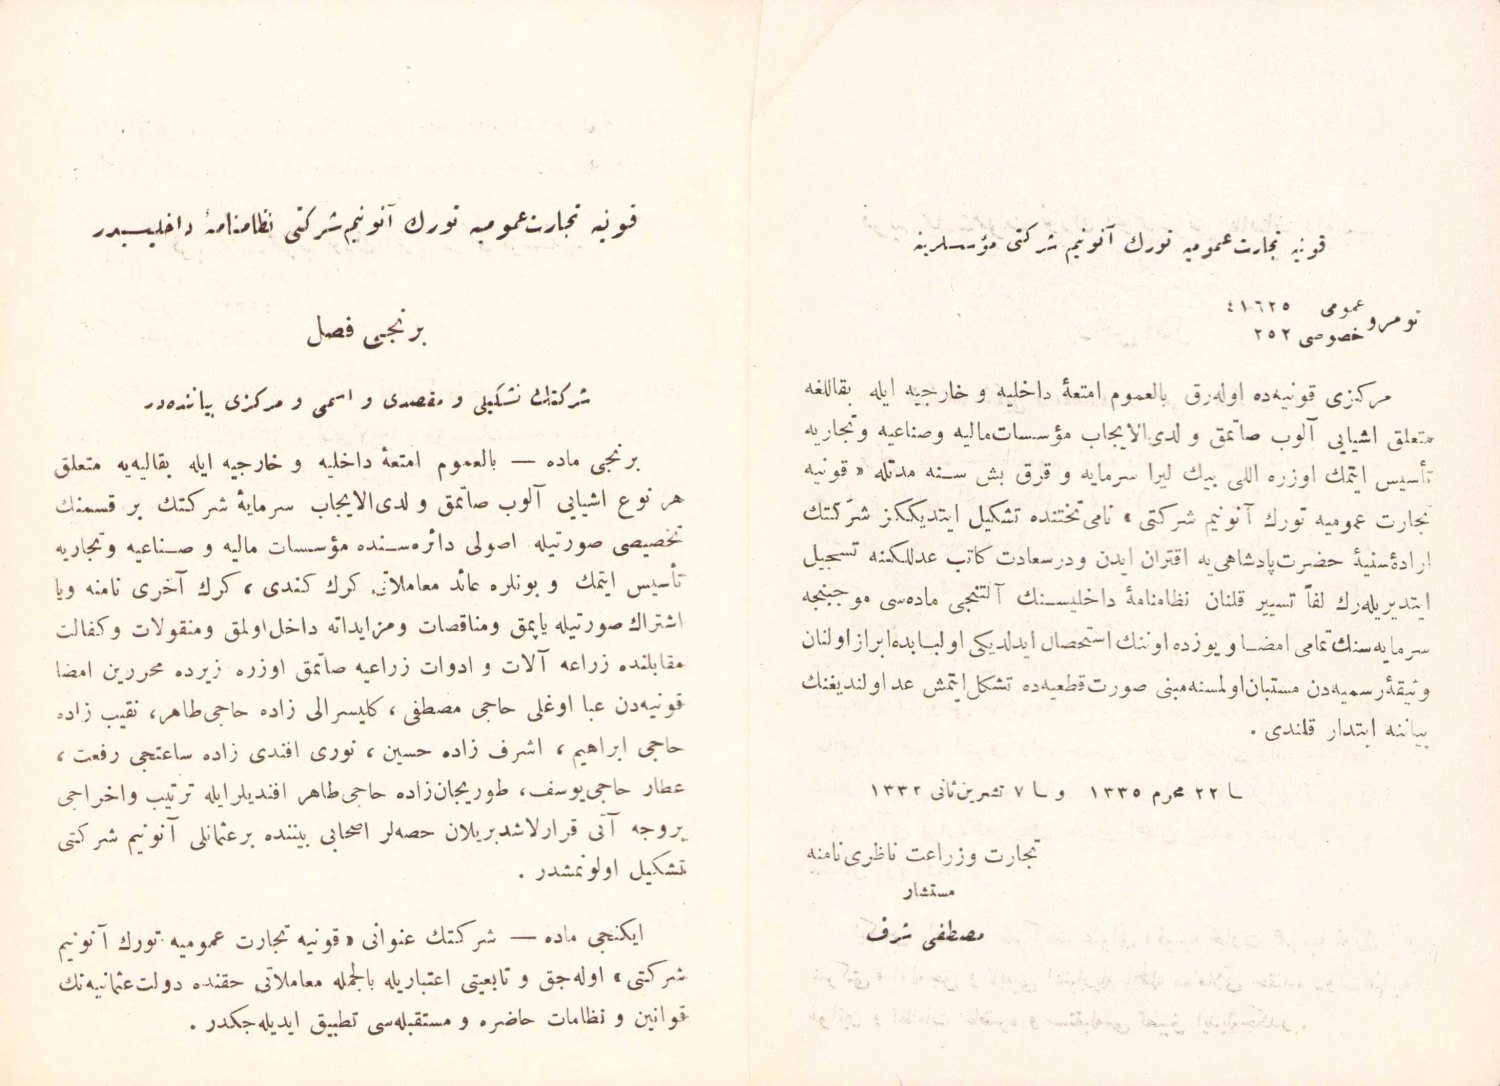 قونیه تجارت عمومیه تورك آنونیم شرکتی مؤسسلرینه
نومرو عمومی ٤١٦٢٥
خصوصی ٢٥٢
مرکزی قونیه‌ده اوله‌رق بالعموم امتعهٔ داخلیه و خارجیه ایله بقاللغه
متعلق اشیایی آلوب صاتمق و لدی‌الایجاب مؤسسات مالیه و صناعیه و تجاریه
تأسیس ایتمك اوزره اللی بیك لیرا سرمایه و قرق بش سـنه مدتله « قونیه
تجارت عمومیه تورك آنونیم شرکتی » نامی تختنده تشکیل ایتدیككز شرکتك
ارادهٔ سنیهٔ حضرت پادشاهی‌یه اقتران ایدن و درسعادت کاتب عدللکنه تسجیل
ایتدیریله‌رك لفاً تسییر قلنان نظامنامهٔ داخلیسـنك آلتنجی ماده‌سی موجبنجه
سرمایه‌سنك تمامی امضـا و یوزده اوننك استحصال ایدلدیکی اولبـابده ابراز اولنان
وثیقهٔ رسمیه‌دن مستبان اولمسنه مبنی صورت قطعیه‌ده تشکل ایتمش عد اولندیغنك
بیاننه ابتدار قلندی .
٢٢ محرم ١٣٣٥ و ٧ تشرین ثانی ١٣٣٢
تجارت و زراعت ناظری نامنه
مستشار
مصطفی شرف
قونیه تجارت عمومیه تورك آنونیم شرکتی نظامنامهٔ داخلیسیدر
برنجی فصل
شرکتك تشکیلی و مقصدی و اسمی و مرکزی بیاننده‌در
برنجی ماده — بالعموم امتعهٔ داخلیه و خارجیه ایله بقالیه‌یه متعلق
هر نوع اشیایی آلوب صاتمق و لدی‌الایجاب سرمایهٔ شرکتك بر قسمنك
تخصیصی صورتیله اصولی دائره‌سـنده مؤسسات مالیه و صـناعیه و تجاریه
تأسیس ایتمك و بونلره عائد معاملاتی کرك کندی ، کرك آخری نامنه ویا
اشتراك صورتیله یاپمق و مناقصات و مزایداته داخل اولمق و منقولات و کفالت
مقابلنده زراعه آلات و ادوات زراعیه صاتمق اوزره زیرده محررین امضا
قونیه‌دن عبا اوغلی حاجی مصطفی ، کلیسرالی زاده حاجی طاهر ، نقیب زاده
حاجی ابراهیم ، اشرف زاده حسین ، نوری افندی زاده ساعتجی رفعت ،
عطار حاجی یوسف ، طوریجان‌زاده حاجی طاهر افندیلر ایله ترتیب و اخراجی
بروجه آتی قرارلاشدیریلان حصه‌لر اصحابی بیننده بر عثمانلی آنونیم شرکتی
تشکیل اولونمشدر .
ایکنجی ماده — شرکتك عنوانی « قونیه تجارت عمومیه تورك آنونیم
شرکتی » اوله‌جق و تابعیتی اعتباریله بالجمله معاملاتی حقنده دولت عثمانیه‌نك
قوانین و نظامات حاضره و مستقبله‌سی تطبیق ایدیله‌جکدر .